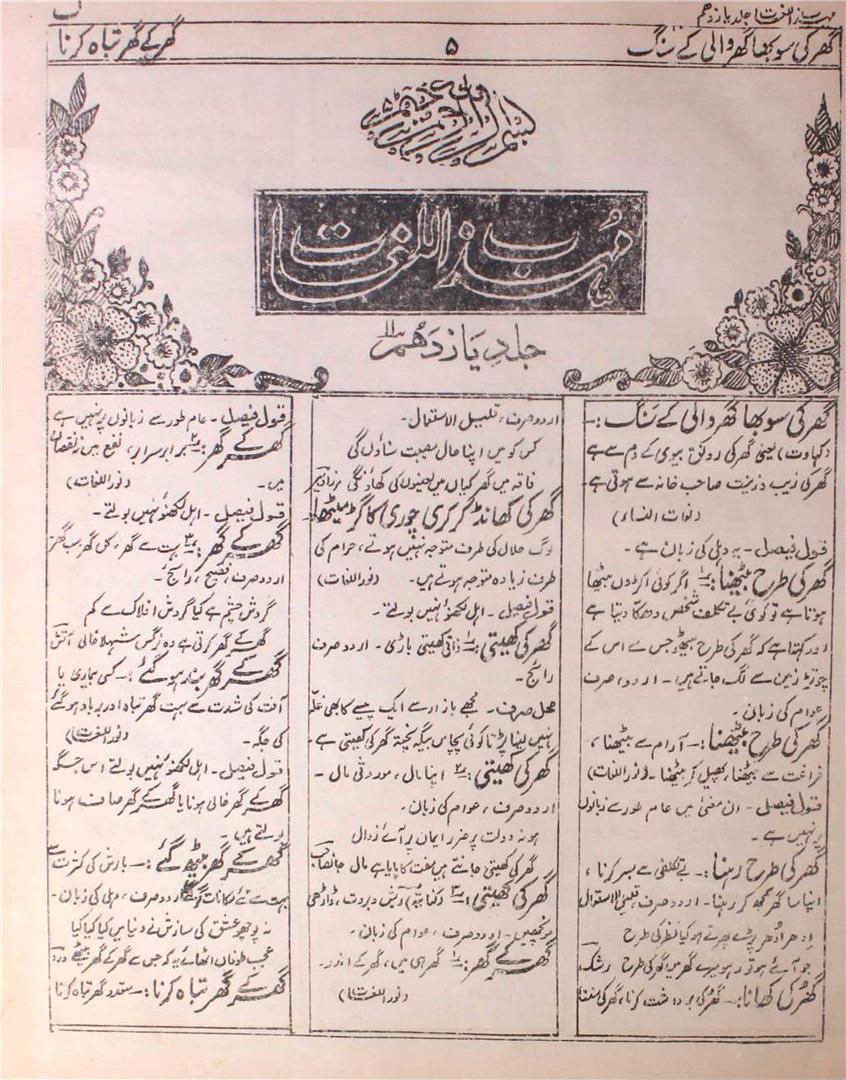 مہذب اللغات جلد یازدہم
گھر کی سوبھا گھر والی کے سنگ
۵
گھر کے گھر تباہ کرنا
بسم اللہ الرحمن الرحیم
مہذب اللغات
جلد یازدہم
گھر کی سوبھا گھر والی کے سنگ :۔
(کہاوت) یعنی گھر کی رونق بیوی کے دم سے ہے
گھر کی زیب و زینت صاحب خانہ سے ہوتی ہے۔
(لغات النساء)
قول فیصل۔ یہ دہلی کی زبان ہے۔
گھر کی طرح بیٹھنا :۔ اگر کوئی اکڑوں بیٹھا
ہوتا ہے تو کوئی بے تکلف شخص دھکا دیتا ہے
اور کہتا ہے کہ گھر کی طرح بیٹھو جس سے اس کے
چوتڑ زمین سے لگ جاتے ہیں۔ اردو، صرف
عوام کی زبان۔
گھر کی طرح بیٹھنا :۔ آرام سے بیٹھنا،
فراغت سے بیٹھنا، پھیل کر بیٹھنا۔ (نور اللغات)
قول فیصل۔ ان معنی میں عام طور سے زبانوں
پر نہیں ہے۔
گھر کی طرح رہنا :۔ بے تکلفی سے بسر کرنا،
اپنا سا گھر سمجھ کر رہنا۔ اردو صرف، قلیل الاستعمال
ادھر ادھر پڑے پھرتے ہو کیا نظر کی طرح
جو آئے ہو تو رہو میرے گھر میں گھر کی طرح رشک
گھر کی کھانا :۔ گھر کی برداشت کرنا، گھر کی سننا
اردو صرف، قلیل الاستعمال۔
کس کو میں اپنا حال مصیبت سناؤں گی
فاقہ میں گھر کیاں میں لعینوں کی کھاؤنگی مرزا دبیر
گھر کی کھانڈ کرکری چوری کا گڑ میٹھا
لوگ حلال کی طرف متوجہ نہیں ہوتے، حرام کی
طرف زیادہ متوجہ ہوتے ہیں۔ (نور اللغات)
قول فیصل۔ اہل لکھنؤ نہیں بولتے۔
گھر کی کھیتی :۔ ذاتی کھیتی باڑی۔ اردو صرف
رائج۔
محل صرف۔ مجھے بازار سے ایک پیسے کا بھی غلہ
نہیں لینا پڑتا کوئی پچاس بیگہ پختہ گھر کی کھیتی ہے۔
گھر کی کھیتی :۔ اپنا مال، موروثی مال۔
اردو صرف، عوام کی زبان۔
ہو نہ دولت پر ضرر ایمان پر آئے زوال
گھر کی کھیتی جانتے ہیں مفت کا پایا ہے مال جانصاحب
گھر کی کھیتی :۔ (کنایتہً) ریش و بروت، ڈاڑھی
مونچھیں۔ اردو صرف، عوام کی زبان۔
گھر کے گھر :۔ گھر ہی میں، گھر کے اندر۔
(نور اللغات)
قول فیصل۔ عام طور سے زبانوں پر نہیں ہے
گھر کے گھر :۔ برابر سرابر، نفع میں نہ نقصان
میں۔ (نور اللغات)
قول فیصل۔ اہل لکھنؤ نہیں بولتے۔
گھر کے گھر :۔ بہت سے گھر، کل گھر سب گھر
اردو صرف، فصیح، رائج۔
گردش چشم ہے کیا گردش افلاک سے کم
گھر کے گھر کرتی ہے وہ نرگس شہلا خالی آتش
گھر کے گھر بند ہو گئے :۔ کسی بیماری یا
آفت کی شدت سے بہت گھر تباہ اور برباد ہو گئے
کی جگہ۔ (نور اللغات)
قول فیصل۔ اہل لکھنؤ نہیں بولتے اس جگہ
گھر کے گھر خالی ہونا یا گھر کے گھر صاف ہونا
بولتے ہیں۔
گھر کے گھر بیٹھ گئے :۔ بارش کی کثرت سے
بہت سے مکانات گر گئے اردو صرف، دہلی کی زبان۔
نہ پوچھو عشق کی سازش نے دنیا میں کیا کیا کیا
عجب طوفاں اٹھائے یہ کہ جس سے گھر کے گھر بیٹھے درد
گھر کے گھر تباہ کرنا :۔ متعدد گھر تباہ کرنا